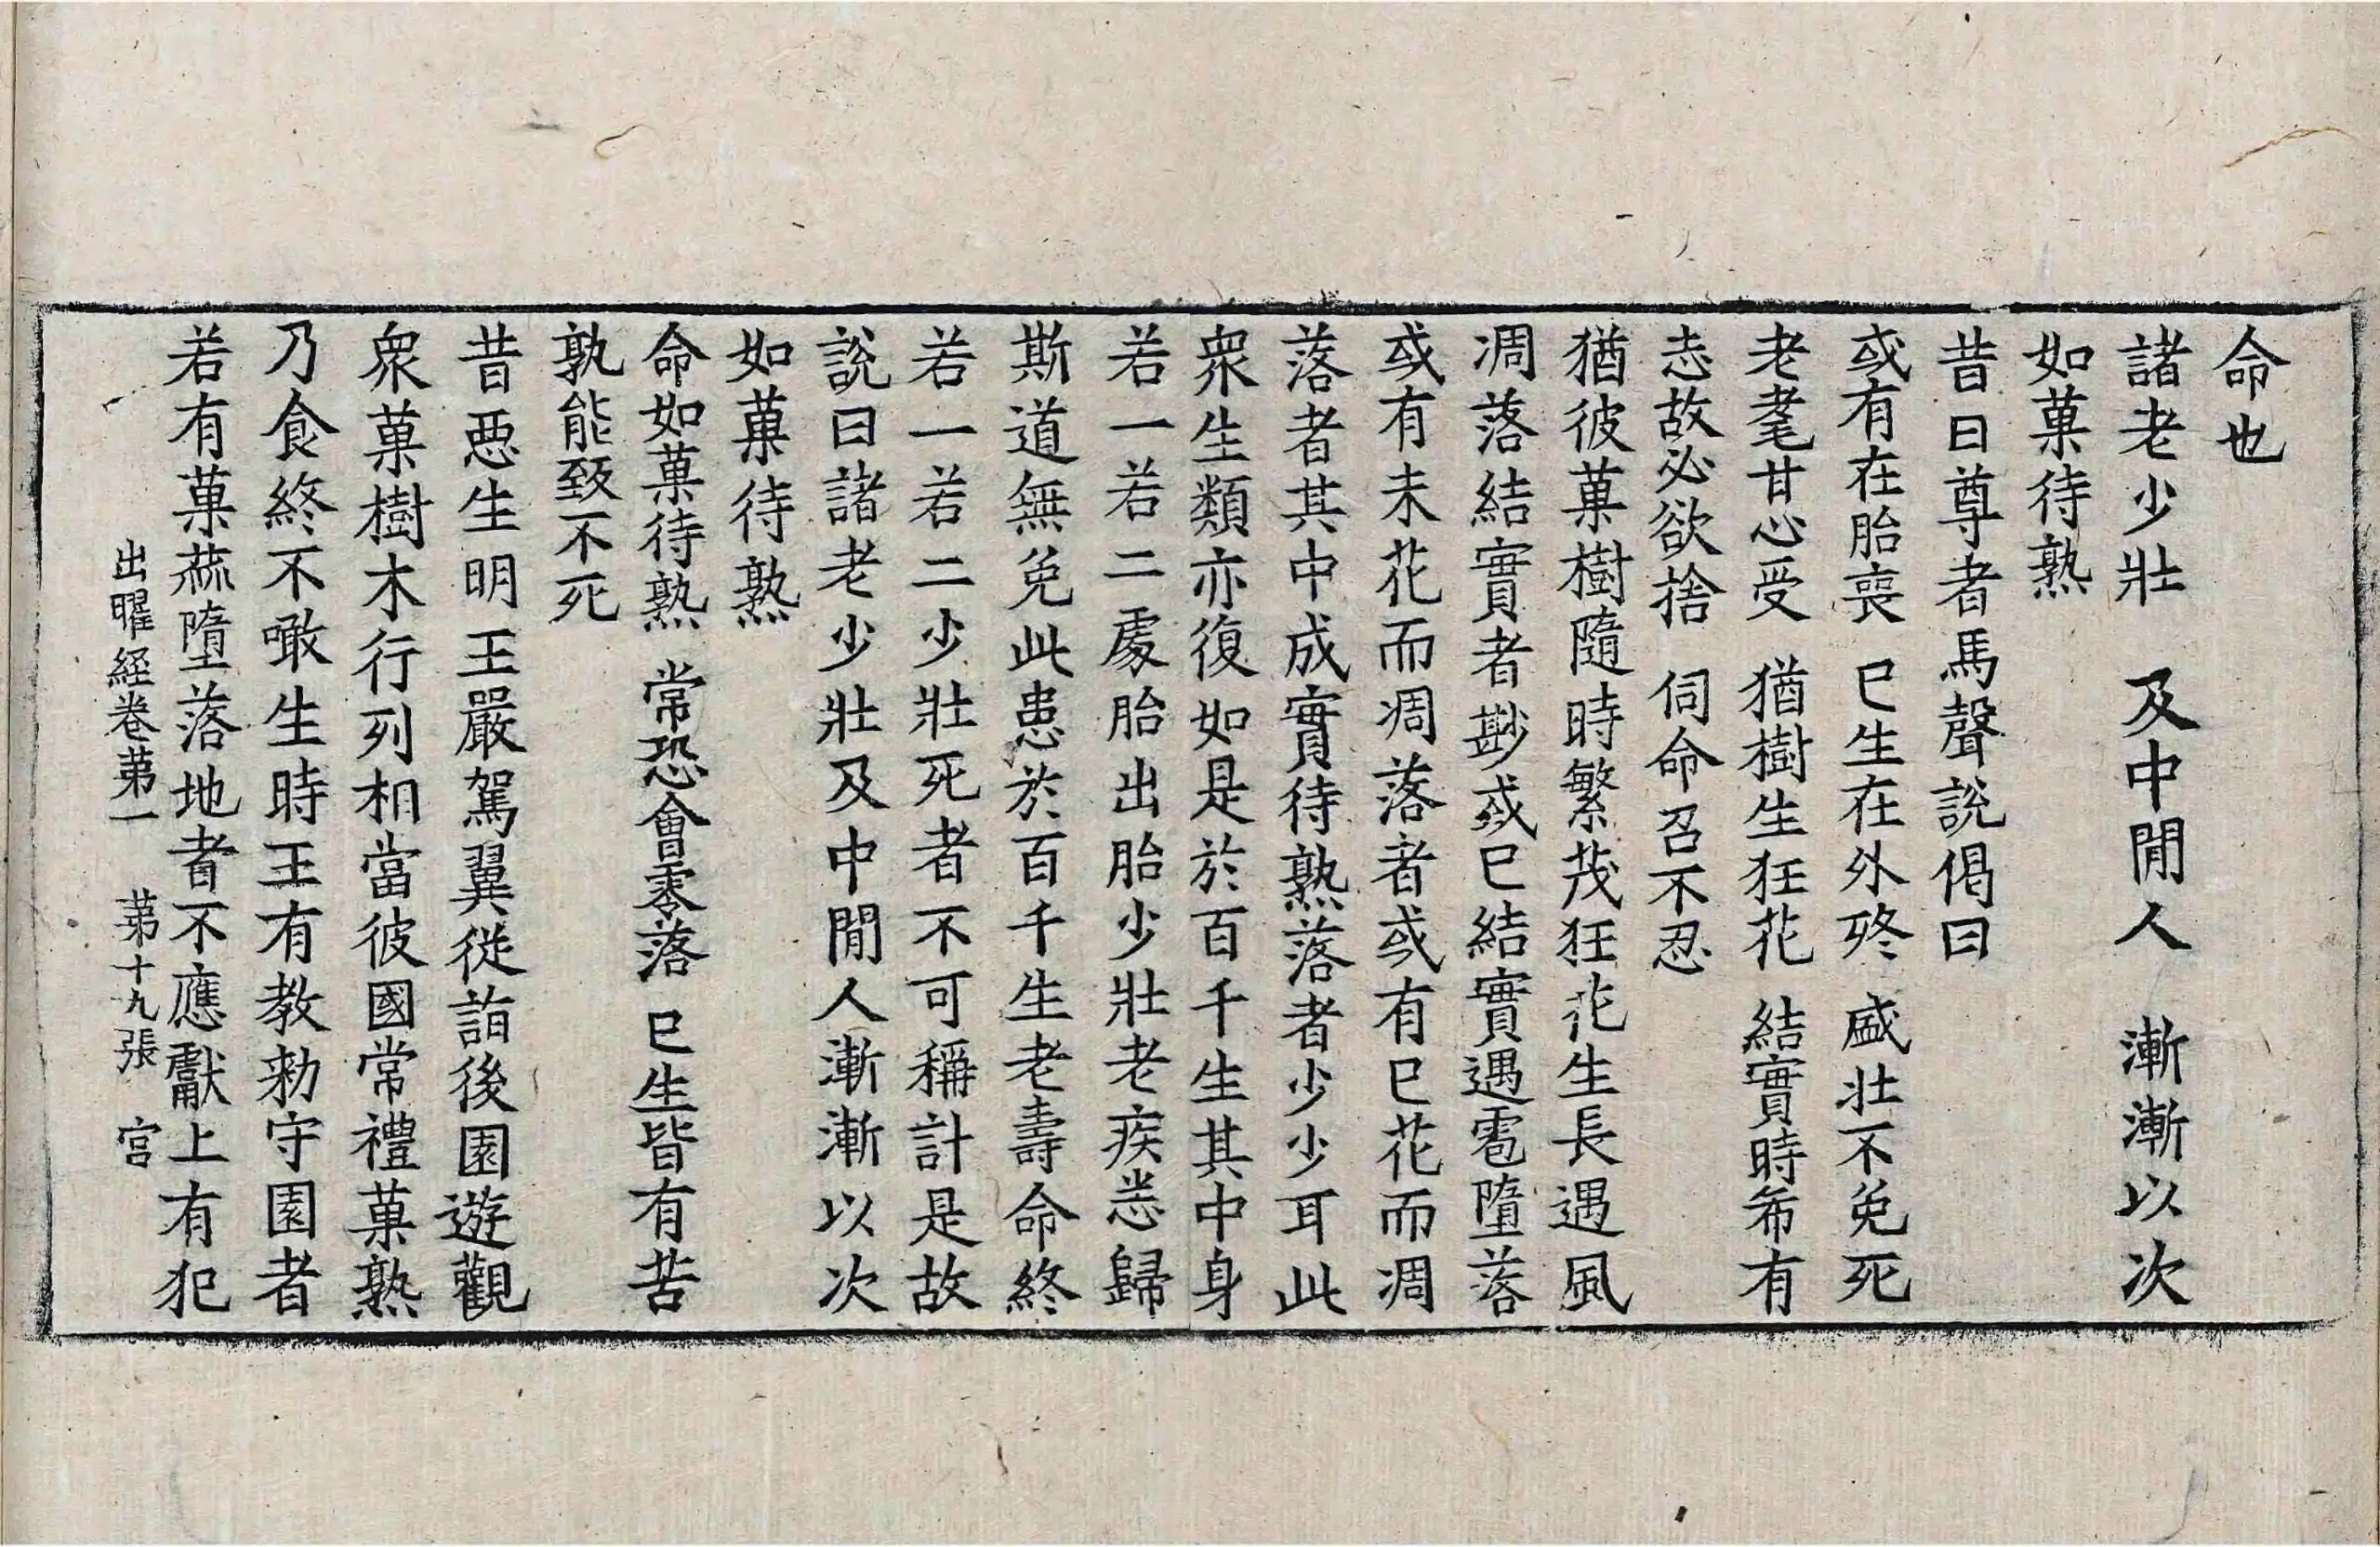 命也
諸老少壯　及中閒人　漸漸以次
如菓待熟
昔曰尊者馬聲說偈曰
或有在胎喪　已生在外終　盛壯不免死
老耄甘心受　猶樹生狂花　結實時希有
志故必欲捨　伺命召不忍
猶彼菓樹隨時繁茂狂花生長遇風
凋落結實者尠或已結實遇雹墮落
或有未花而凋落者或有已花而凋
落者其中成實待熟落者少少耳此
衆生類亦復如是於百千生其中身
若一若二處胎出胎少壯老疾悉歸
斯道無免此患於百千生老壽命終
若一若二少壯死者不可稱計是故
說曰諸老少壯及中閒人漸漸以次
如菓待熟
命如菓待熟　常恐會零落　已生皆有苦
孰能致不死
昔惡生明王嚴駕翼從詣後園遊觀
衆菓樹木行列相當彼國常禮菓熟
乃食終不噉生時王有教勑守園者
若有菓蓏墮落地者不應獻上有犯
出曜經卷第一　第十九張　宮